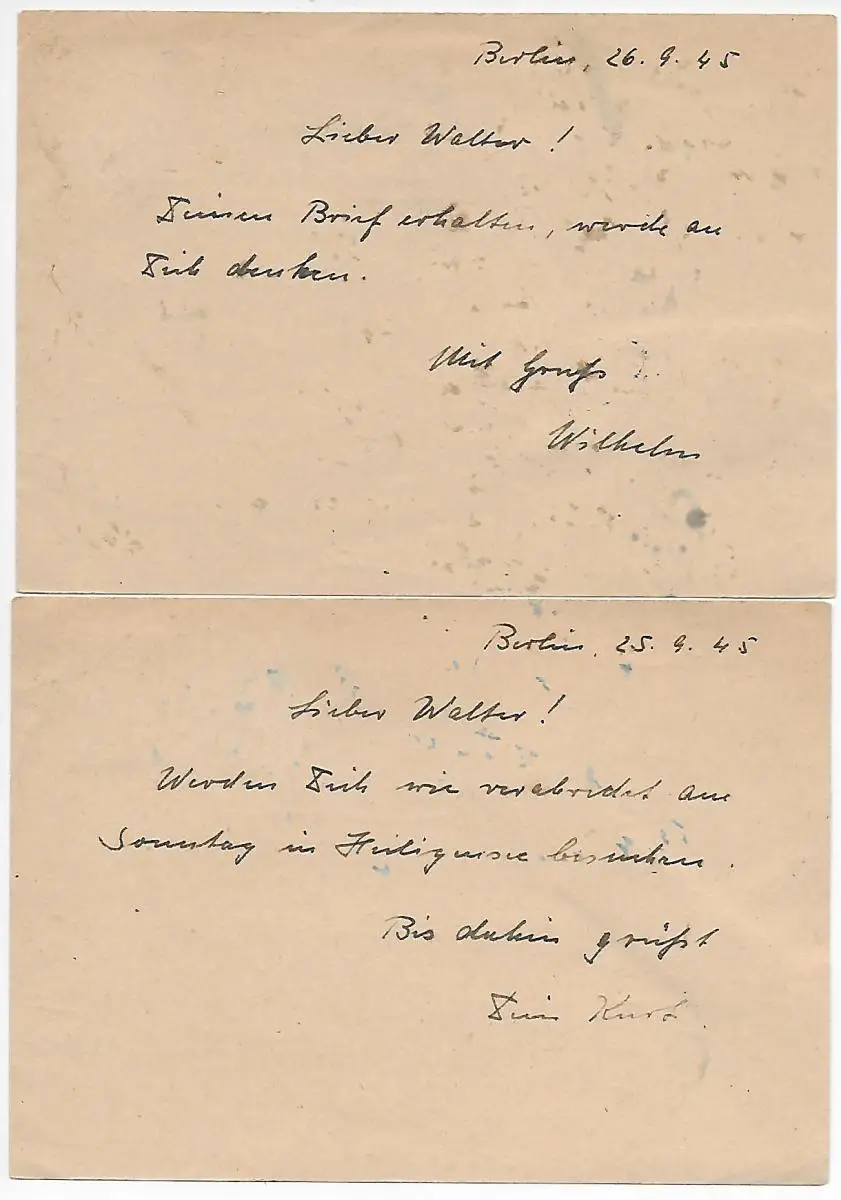 Berlin, 26. 9. 45
Lieber Walter!
Deinen Brief erhalten, werde an
Dich denken.
Mit Gruß
Wilhelm
Berlin, 25. 9. 45
Lieber Walter!
Werden Dich wie verabredet am
Sonntag in Heiligensee besuchen.
Bis dahin grüßt
Dein Kurt.